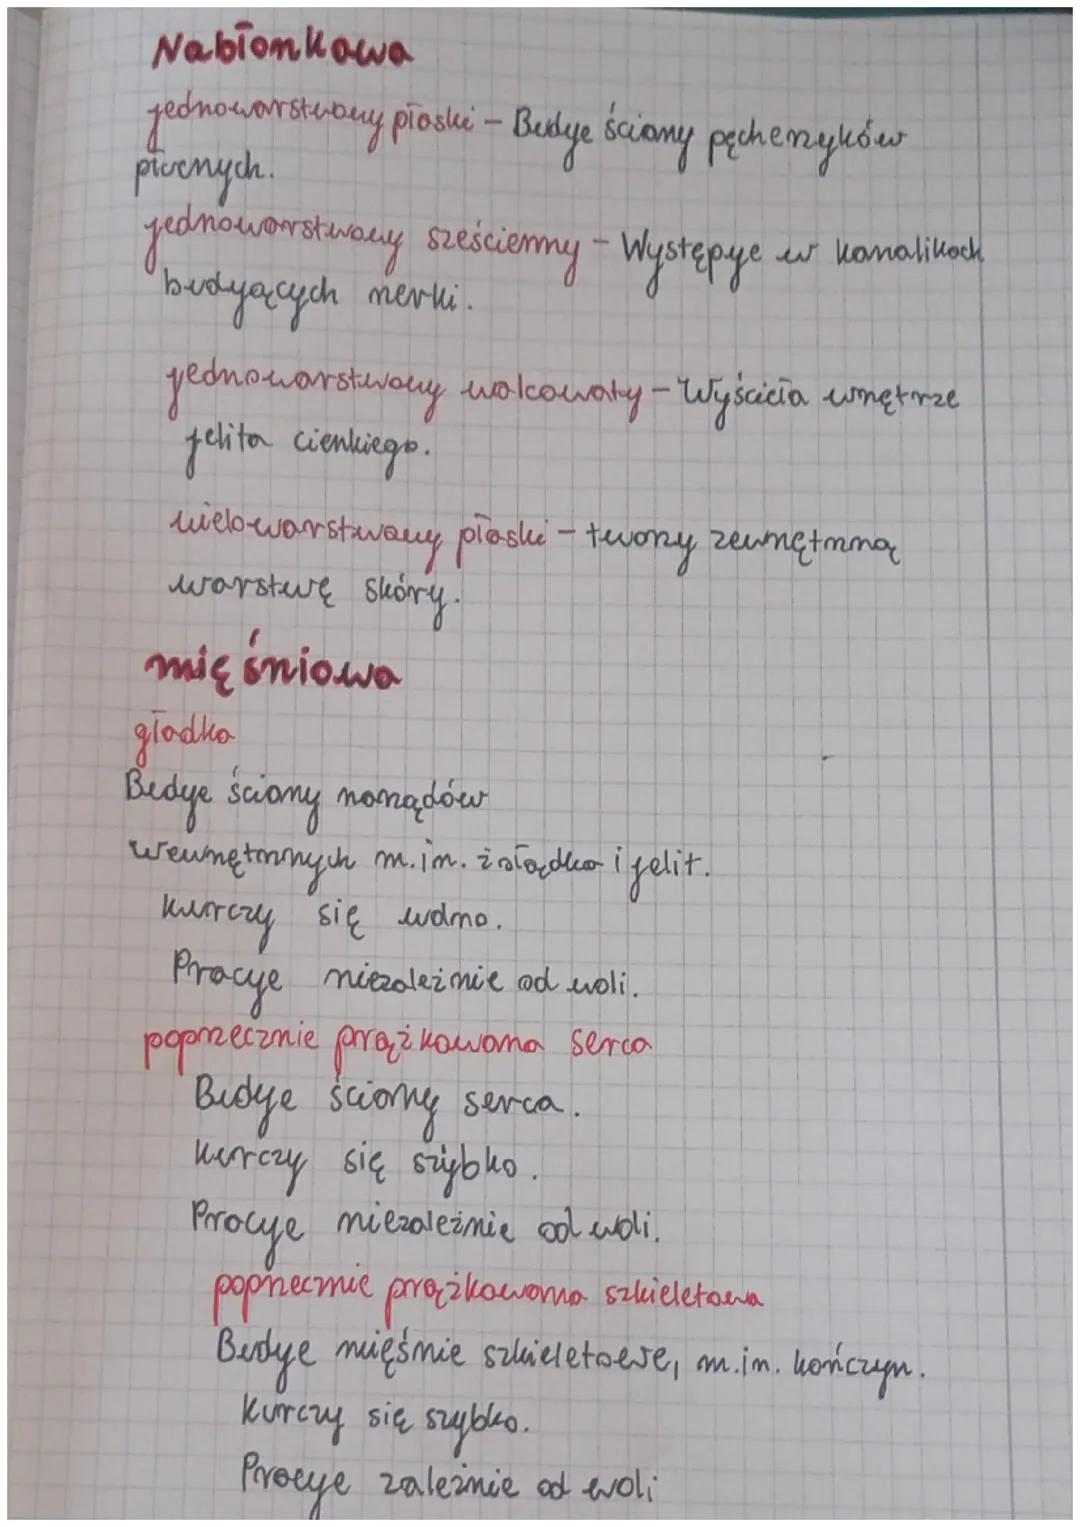 Nabłonkowa
jednowarstwowy płaski – Buduje ściany pęcherzyków
płucnych.
jednowarstwowy sześcienny – Występuje w kanalikach
budujących nerki.
jednowarstwowy walcowaty – Wyściela wnętrze
jelita cienkiego.
wielowarstwowy płaski – tworzy zewnętrzną
warstwę skóry.
mięśniowa
gładka
Buduje ściany narządów
wewnętrznych m.in. żołądka i jelit.
kurczy się wolno.
Pracuje niezależnie od woli.
poprzecznie prążkowana serca
Buduje ściany serca.
kurczy się szybko.
Pracuje niezależnie od woli.
poprzecznie prążkowana szkieletowa
Buduje mięśnie szkieletowe, m.in. kończyn.
kurczy się szybko.
Pracuje zależnie od woli